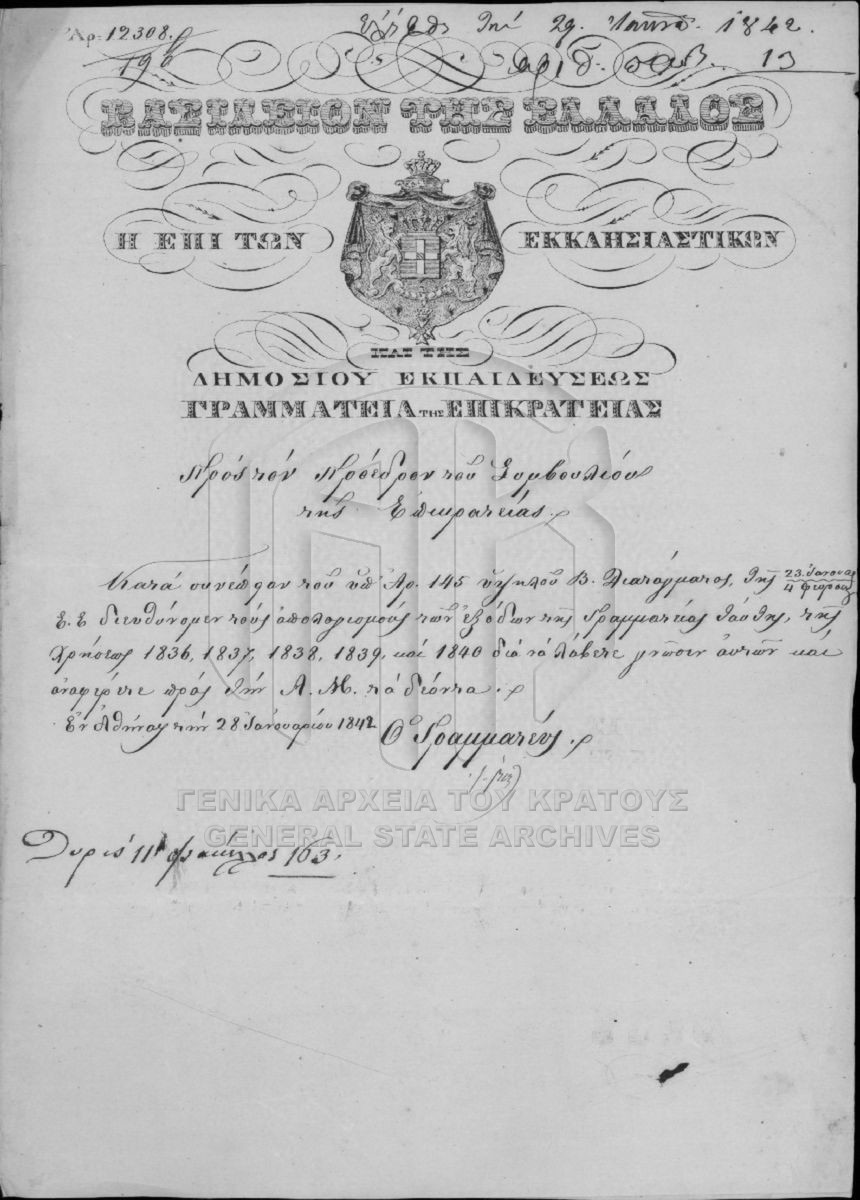 Ἀρ. 12308.
ἐλήφθη τὴν 29 Ἰανουρ. 1842.
196
ἀριθ. πρωτ. 13
ΒΑΣΙΛΕΙΟΝ ΤΗΣ ΕΛΛΑΔΟΣ
Η ΕΠΙ ΤΩΝ ΕΚΚΛΗΣΙΑΣΤΙΚΩΝ
ΚΑΙ ΤΗΣ
ΔΗΜΟΣΙΟΥ ΕΚΠΑΙΔΕΥΣΕΩΣ
ΓΡΑΜΜΑΤΕΙΑ ΤΗΣ ΕΠΙΚΡΑΤΕΙΑΣ
Πρὸς τὸν Πρόεδρον τοῦ Συμβουλίου
τῆς Ἐπικρατείας.
Κατὰ συνέπειαν τοῦ ὑπ' Ἀρ. 145 ὑψηλοῦ Β. Διατάγματος, τῆς 23 Ἰανουαρ / 4 Φεβρουαρ
ἐ. ἔ διευθύνομεν τοὺς ἀπολογισμοὺς τῶν ἐξόδων τῆς Γραμματείας ταύτης, τῆς
Χρήσεως 1836, 1837, 1838, 1839, καὶ 1840 διὰ νὰ λάβετε γνῶσιν αὐτῶν καὶ
ἀναφέρετε πρὸς τὴν Α. Μ. τὰ δέοντα.
Ἐν Ἀθήναις τὴν 28 Ἰανουαρίου 1842 Ὁ Γραμματεὺς.
ΓΕΝΙΚΑ ΑΡΧΕΙΑ ΤΟΥ ΚΡΑΤΟΥΣ
GENERAL STATE ARCHIVES
11 φάκελλος 163.